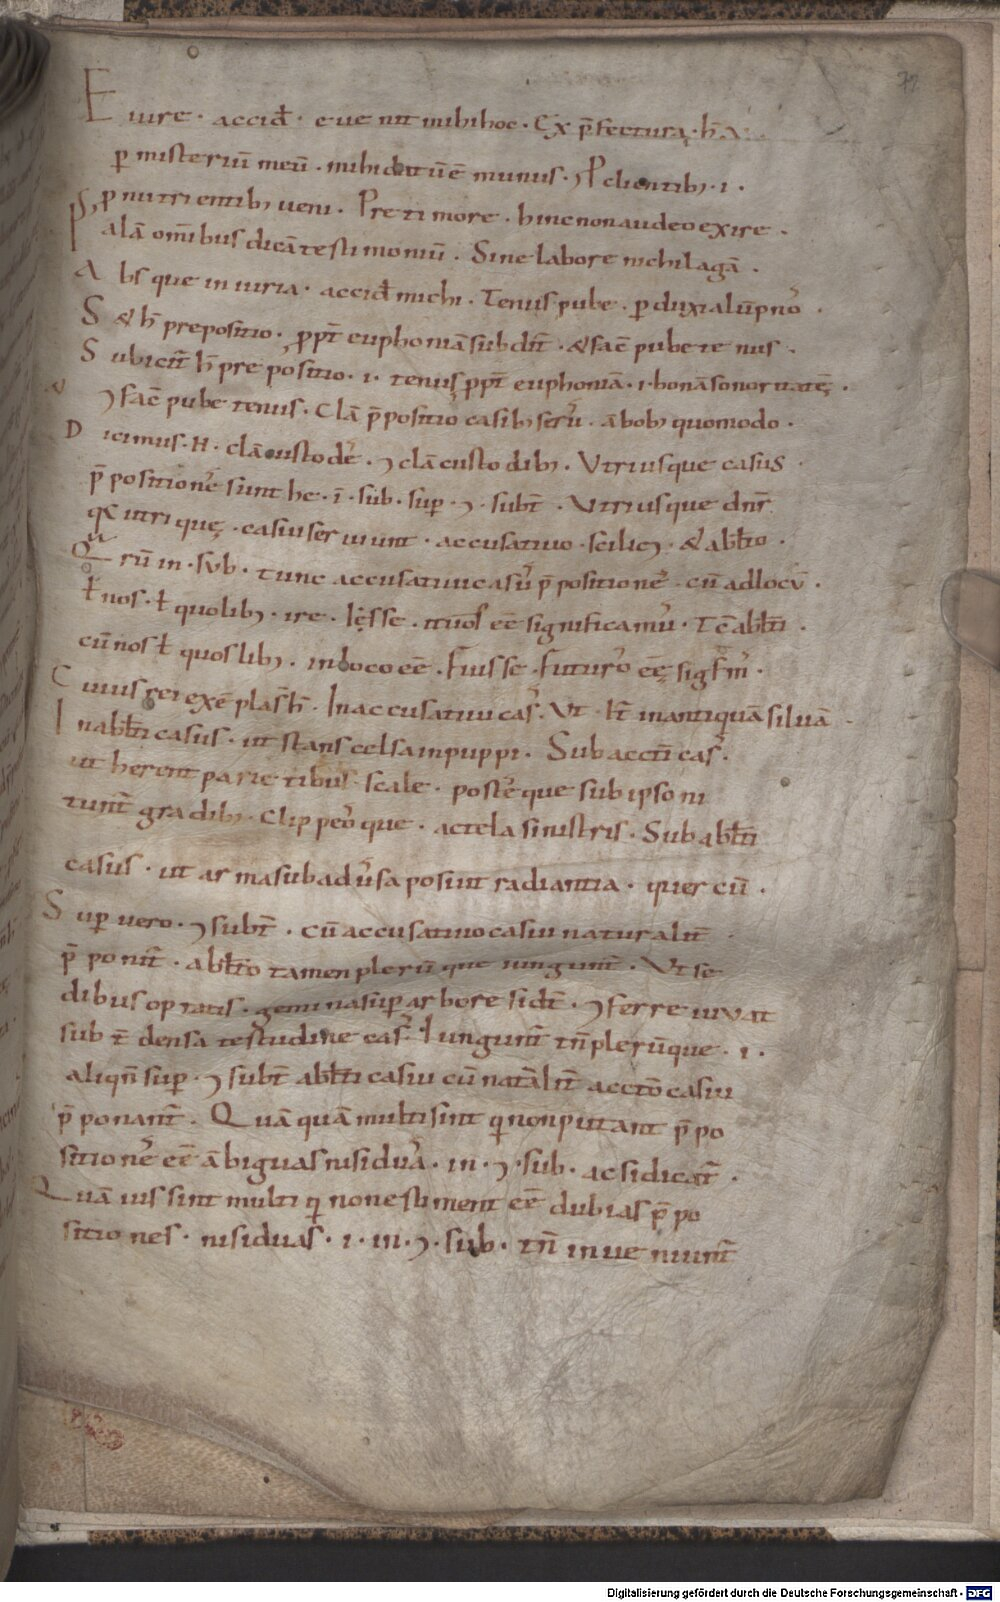 72
E iure · accid̄ · eue nit mihi hoc · Ex p̄fectura · h̄
p misteriū meū · mihi datū ē munus ·
p nutrientibꝫ ueni · Pre timore · hinc non audeo exire ·
Palā om̄ibus dicā testimoniū · Sine labore nichil agā ·
A bsque iniuria · accid̄ michi · Tenus pube · p duxi
S & h̄ prepositio · ꝓpt̄ euphoniā subdit̄ · & fac̄ pube te nus ·
S ubicit̄ h̄ pre positio · i · tenus ꝓpt̄ euphoniā · i · bonā sonoritatē ·
⁊ fac̄ pube tenus · Clā p̄positio casibꝫ seru̓ · ābobꝫ quomodo ·
D icimus · N · clā custodē · ⁊ clā custodibꝫ · Vtriusque casus ·
p̄positione̓ sunt he · ī · sub · sup · ⁊ · subt̄ · Vtriusque dn̄r
utrique · casui seruiunt · accusatiuo · scilicꝫ · & abl̄to ·
Qrū in · sub · tunc accusatiui casu̓ p̄positione̓ · cū ad locū ·
ł nos · ł quolibꝫ · ire · isse · ituros eē significamu̓ · Tc̄ abl̄ti ·
cū nos ł quoslibꝫ · in loco eē · Fuisse · futuro̓ eē sigf̄m̓ ·
C uius rei exēpla s̄ h̄ · In accusatiui cas̓ · Vt · It̄ in antiquā siluā ·
I n abl̄ti casus · ut stans celsa in puppi · Sub acctī cas̓ ·
ut herent parietibus scale · poste̓que sub ipso ni
tunt̄ gradibꝫ · Clippeo̓ que · ac tela sinistris · Sub abl̄ti
casus · ut arma sub adu̓sa posuit radiantia · quercū ·
S up uero · ⁊ subt̄ · cū accusatiuo casui naturalit̄
p̄ponūt̄ · abl̄to tamen plerūque iungunt̄ · Vt se
dibus optatis · gemina sup arbore sidt̄ · ⁊ ferre iuvat
sub t̄ densa testudine cas̓ · Iungunt̄ tn̄ plerūque · i ·
aliqn̄ sup · ⁊ subt̄ abl̄ti casui cū natālit̄ acctō casui
p̄ponant̄ · Quā quā multi sint qi non putant p̄po
sitione̓ eē ābiguas nisi dua̓ · in · ⁊ · sub · ac si dicat̄ ·
Quāuis sint multi qi non estiment eē dubias p̄po
sitiones · nisi duas · i · in · ⁊ · sub · tn̄ inueniunt̄
Digitalisierung gefördert durch die Deutsche Forschungsgemeinschaft · DFG